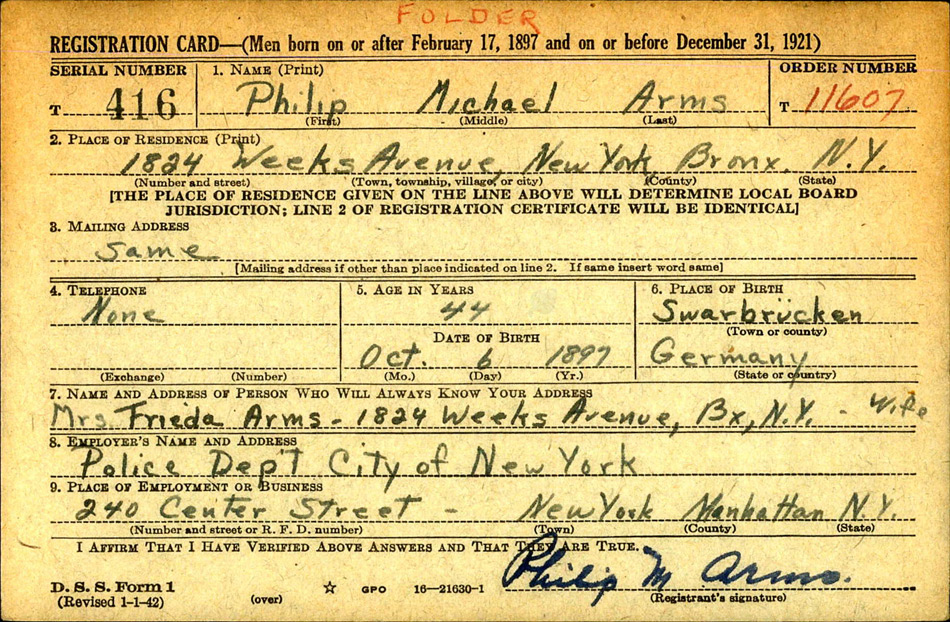 FOLDER
REGISTRATION CARD—(Men born on or after February 17, 1897 and on or before December 31, 1921)
SERIAL NUMBER 1. NAME (Print) ORDER NUMBER
T 416 Philip Michael Arms T 11607
(First) (Middle) (Last)
2. PLACE OF RESIDENCE (Print)
1824 Weeks Avenue, New York Bronx. N.Y.
(Number and street) (Town, township, village, or city) (County) (State)
[THE PLACE OF RESIDENCE GIVEN ON THE LINE ABOVE WILL DETERMINE LOCAL BOARD
JURISDICTION; LINE 2 OF REGISTRATION CERTIFICATE WILL BE IDENTICAL]
3. MAILING ADDRESS
Same
[Mailing address if other than place indicated on line 2. If same insert word same]
4. TELEPHONE 5. AGE IN YEARS 6. PLACE OF BIRTH
None 44 Swarbrücken
(Town or county)
DATE OF BIRTH
Oct. 6 1897 Germany
(Exchange) (Number) (Mo.) (Day) (Yr.) (State or country)
7. NAME AND ADDRESS OF PERSON WHO WILL ALWAYS KNOW YOUR ADDRESS
Mrs. Frieda Arms - 1824 Weeks Avenue, Bx, N.Y. - Wife
8. EMPLOYER'S NAME AND ADDRESS
Police Dep't City of New York
9. PLACE OF EMPLOYMENT OR BUSINESS
240 Center Street - New York Manhattan N.Y.
(Number and street or R. F. D. number) (Town) (County) (State)
I AFFIRM THAT I HAVE VERIFIED ABOVE ANSWERS AND THAT THEY ARE TRUE.
Philip M Arms.
D. S. S. Form 1
(Revised 1-1-42) (over) ☆ GPO 16—21630-1 (Registrant's signature)